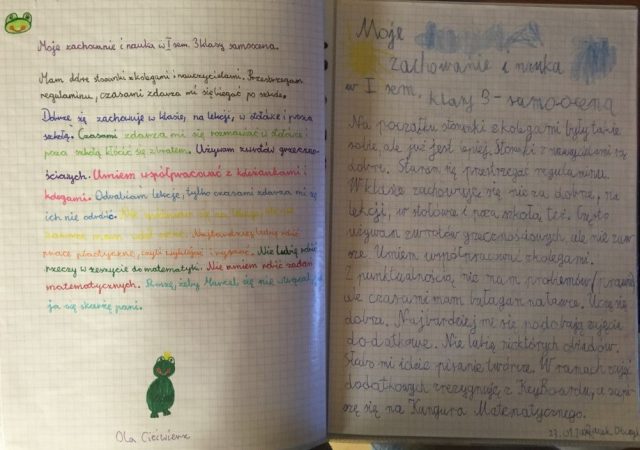 Moje zachowanie i nauka w I sem. 3 klasy samoocena.
Mam dobre stosunki z kolegami i nauczycielami. Przestrzegam
regulaminu, czasami zdarza mi się biegać po szkole.
Dobrze się zachowuję w klasie, na lekcji, w stołówce i poza
szkołą. Czasami zdarza mi się rozmawiać w stołówce i
poza szkołą kłócić się z bratem. Używam zwrotów grzeczno-
ściowych. Umiem współpracować z koleżankami i
kolegami. Odrabiam lekcje, tylko czasami zdarza mi się
ich nie odrobić. Nie
Najbardziej lubię robić
prace plastyczne, czyli wyklejać i rysować. Nie lubię robić
rzeczy w zeszycie do matematyki. Nie umiem robić zadań
matematycznych. Proszę, żeby Marcel się nie
ja się skarżę pani.
Ola Cieciwierz
Moje
zachowanie i nauka
w I sem. klasy 3 - samoocena
Na początku stosunki z kolegami były takie
sobie, ale już jest lepiej. Stosunki z nauczycielami są
dobre. Staram się przestrzegać regulaminu.
W klasie zachowuję się nie za dobrze, na
lekcji, w stołówce i poza szkołą też. Często
używam zwrotów grzecznościowych, ale nie zaw-
sze. Umiem współpracować z kolegami.
Z punktualnością nie mam problemów
ale czasami mam bałagan na ławce. Uczę się
dobrze. Najbardziej mi się podobają zajęcia
dodatkowe. Nie lubię niektórych obiadów.
Słabo mi idzie pisanie twórcze. W ramach zajęć
dodatkowych zrezygnuję z Keyboardu, a zapi-
szę się na Kangura Matematycznego.